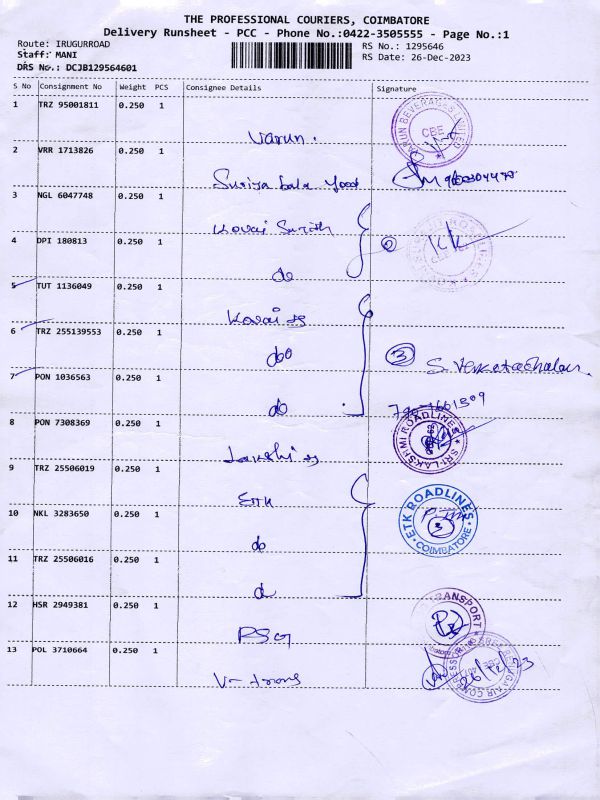 THE PROFESSIONAL COURIERS, COIMBATORE
Delivery Runsheet - PCC - Phone No.:0422-3505555 - Page No.:1
Route: IRUGURROAD
Staff: MANI
DRS No.: DCJB129564601
RS No.: 1295646
RS Date: 26-Dec-2023
S No Consignment No Weight PCS Consignee Details Signature
1 TRZ 95001811 0.250 1
VARUN BEVERAGES LIMITED
CBE
Varun.
2 VRR 1713826 0.250 1
Suriya bala
3 NGL 6047748 0.250 1
Kovai
4 DPI 180813 0.250 1
② KK
do
5 TUT 1136049 0.250 1
Kovai
6 TRZ 255139553 0.250 1
do
③ S. Venkatachalam.
7 PON 1036563 0.250 1
do
8 PON 7308369 0.250 1
SRI LAKSHMI ROADLINES
9 TRZ 25506019 0.250 1
ETK
ETK ROADLINES
COIMBATORE
③
10 NKL 3283650 0.250 1
do
11 TRZ 25506016 0.250 1
d
12 HSR 2949381 0.250 1
TRANSPORT
PSG
13 POL 3710664 0.250 1
26/12/23
V- trans